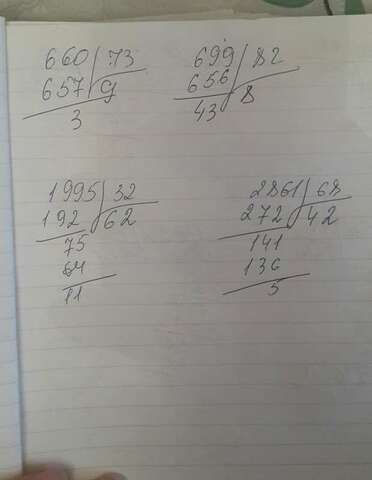 660 73 699 82
657 9 656 8
3 43
1995 32 2861 68
192 62 272 42
75 141
64 136
11 5